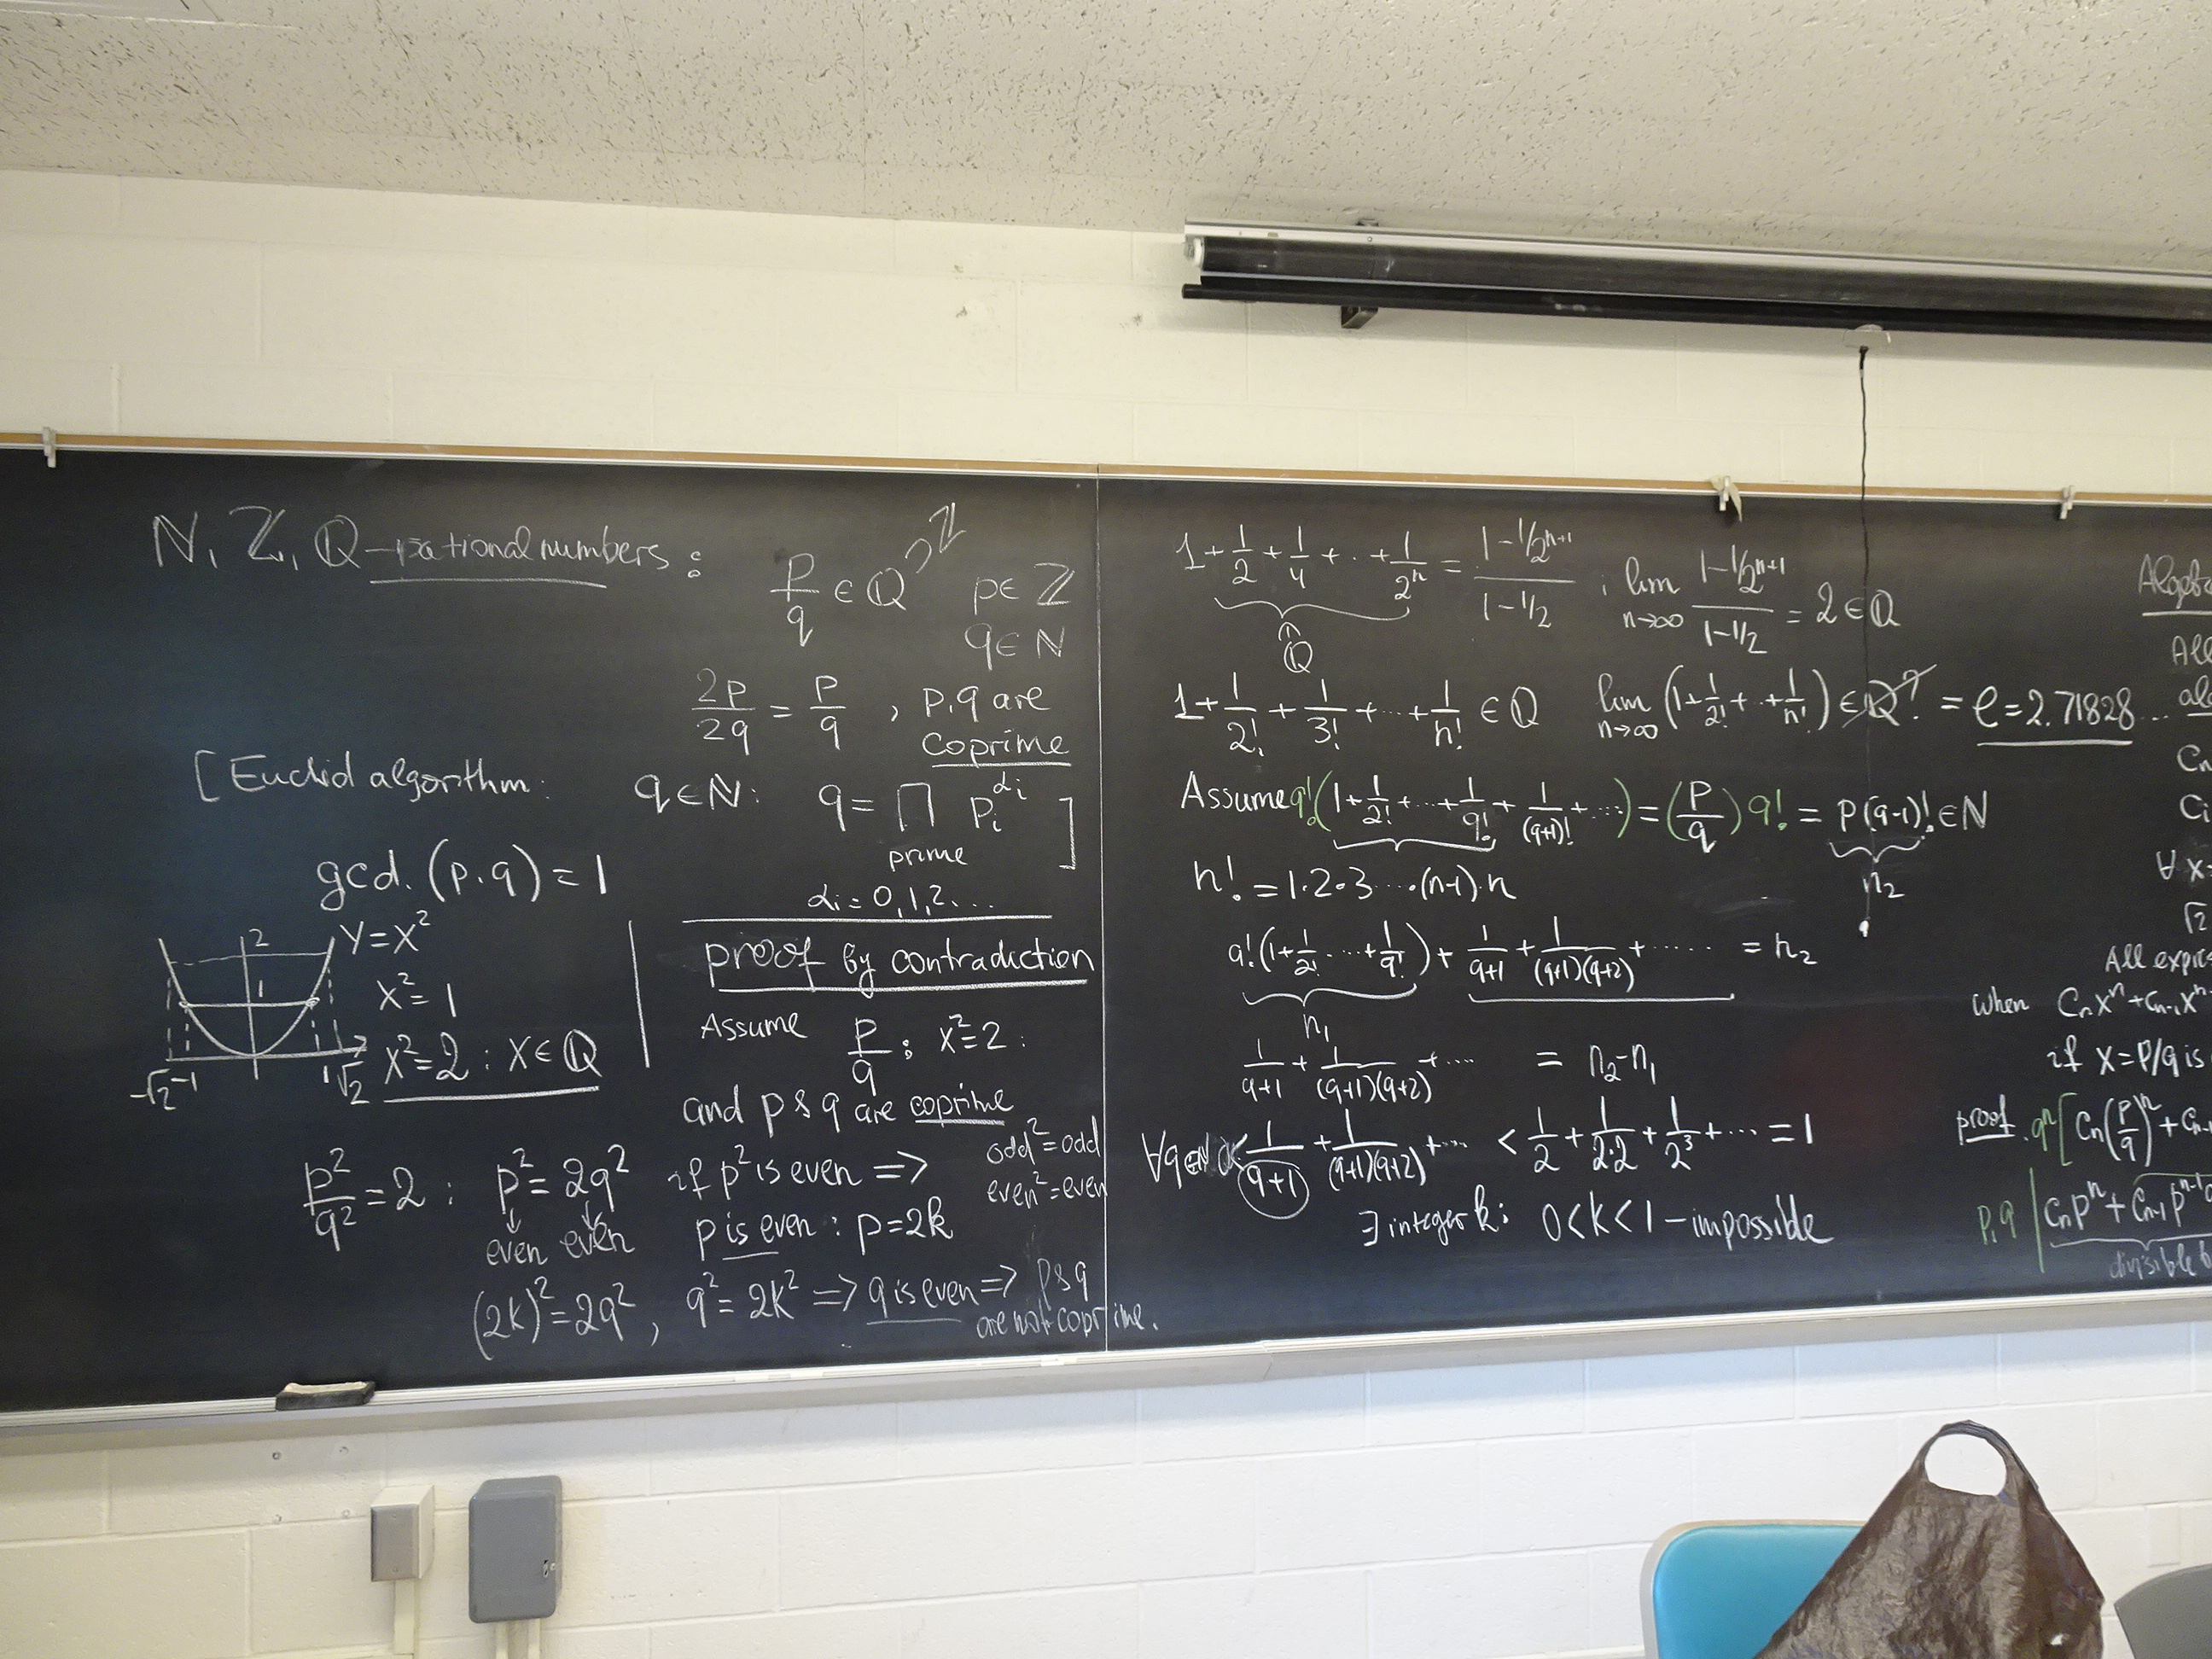 N, Z, Q - rational numbers :
p/q ∈ Q , Z
p ∈ Z
q ∈ N
2p/2q = p/q , p,q are
coprime
[Euclid algorithm: q ∈ N: q = ∏ p_i^αi ]
prime
gcd. (p.q) = 1
αi = 0,1,2...
Y = x²
2
1
x² = 1
x² = 2 : x ∈ Q
-√2 -1 1 √2
proof by contradiction
Assume p/q ; x² = 2 :
and p & q are coprime
p²/q² = 2 : p² = 2q²
even even
if p² is even =>
odd² = odd
even² = even
p is even : p = 2k
(2k)² = 2q² , q² = 2k² => q is even => p & q
are not coprime.
1 + 1/2 + 1/4 + .. + 1/2ⁿ = (1 - 1/2ⁿ⁺¹)/(1 - 1/2) ; lim n→∞ (1 - 1/2ⁿ⁺¹)/(1 - 1/2) = 2 ∈ Q
Q
1 + 1/2! + 1/3! + ... + 1/n! ∈ Q lim n→∞ (1 + 1/2! + .. + 1/n!) ∈ Q? = e = 2.71828...
Assume q!(1 + 1/2! + ... + 1/q! + 1/(q+1)! + ...) = (p/q) q! = p(q-1)! ∈ N
n₂
n! = 1·2·3·...·(n-1)·n
q!(1 + 1/2! ... + 1/q!) + 1/(q+1) + 1/((q+1)(q+2)) + ...... = n₂
n₁
1/(q+1) + 1/((q+1)(q+2)) + .... = n₂ - n₁
∀q∈N 0< 1/(q+1) + 1/((q+1)(q+2)) + ... < 1/2 + 1/(2·2) + 1/2³ + ... = 1
∃ integer k: 0 < k < 1 - impossible
All
Cn
Ci
∀ x =
√2
when Cn xⁿ + Cn-1 xⁿ
if x = p/q is
proof. qⁿ[Cn(p/q)ⁿ + Cn-1
p,q | Cn pⁿ + Cn-1 pⁿ⁻¹